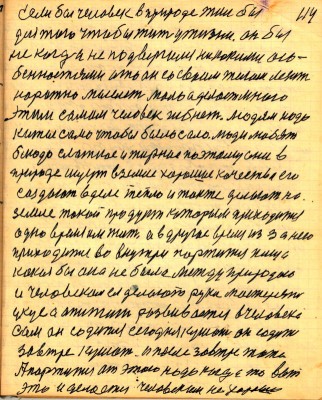 Если бы человек в природе жил бы 114
для того чтобы тут у жизни. он бы
не когда не подвергался никакими осо-
бенностями а то он со своим телом лезит
коротко мыслит мало а делает много
этим самим человек гибнет. людям надо
кит само чтобы было сало. люди любят
блюдо слаткое и жирное поэтому они в
природе ищут в земле хорошие качества его
создают в деле тепло и также делают на
земле такой продукт которым приходится
одно время им жить а в другое время из за него
приходится во внутри портится пища
какая бы она не была между природою
и человеком сделают руки мастерския
вкус а апитит развивается в человеке
Сам он садится сегодня кушает он садит
завтре кушает. и после завтре тоже
А портится от этого надо когда то быть
Это и делается человеком не хорошо